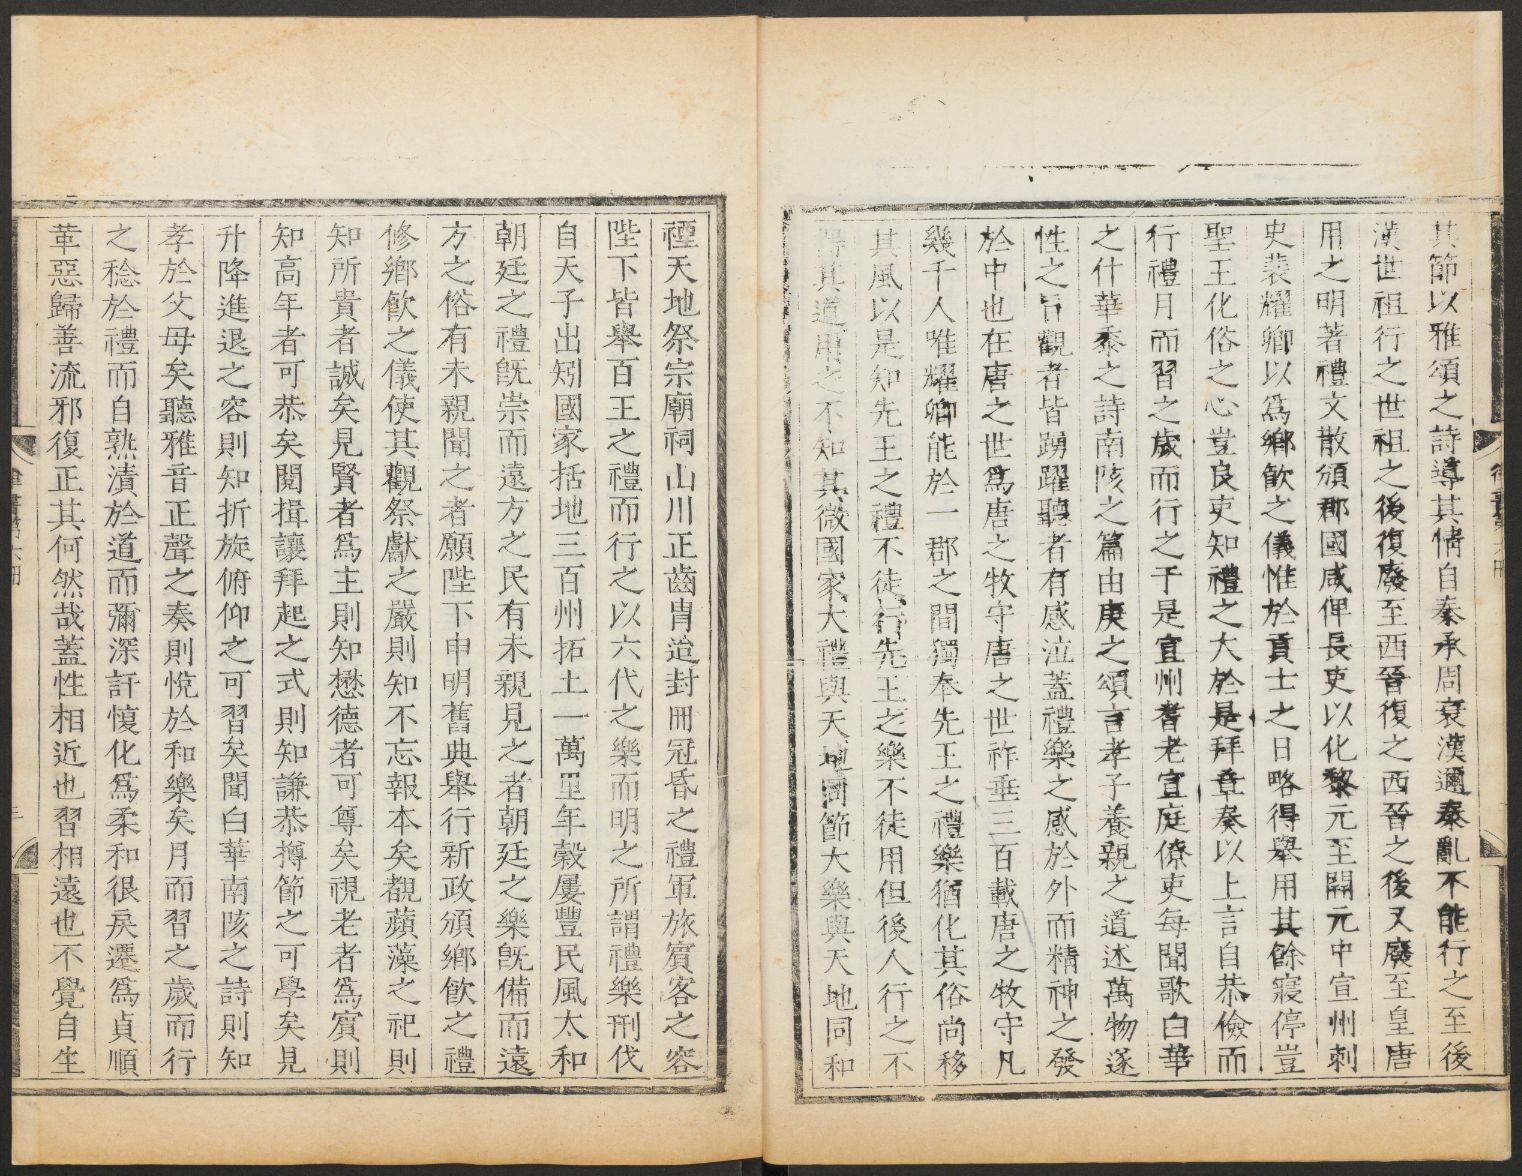 其節以雅頌之詩導其情自秦承周衰漢邇秦亂不能行之至後
漢世祖行之世祖之後復廢至西晉復之西晉之後又廢至皇唐
用之明著禮文散頒郡國咸俾長吏以化黎元至開元中宣州刺
史裴耀卿以爲鄉飲之儀惟於貢士之日略得舉用其餘寢停豈
聖王化俗之心豈良吏知禮之大於是拜章奏以上言自恭儉而
行禮月而習之歲而行之于是宣州耆老宣庭僚吏每聞歌白華
之什華黍之詩南陔之篇由庚之頌言孝子養親之道述萬物遂
性之旨觀者皆踴躍聽者有感泣蓋禮樂之感於外而精神之發
於中也在唐之世爲唐之牧守唐之世祚垂三百載唐之牧守凡
幾千人唯耀卿能於一郡之間獨奉先王之禮樂猶化其俗尚移
其風以是知先王之禮不徒行先王之樂不徒用但後人行之不
得其道用之不知其微國家大禮與天地同節大樂與天地同和
禋天地祭宗廟祠山川正齒胄迨封冊冠昏之禮軍旅賓客之容
陛下皆舉百王之禮而行之以六代之樂而明之所謂禮樂刑伐
自天子出矧國家括地三百州拓土一萬里年穀屢豐民風太和
朝廷之禮旣崇而遠方之民有未親見之者朝廷之樂旣備而遠
方之俗有未親聞之者願陛下申明舊典舉行新政頒鄉飲之禮
修鄉飲之儀使其觀祭獻之嚴則知不忘報本矣覩蘋藻之祀則
知所貴者誠矣見賢者爲主則知懋德者可尊矣視老者爲賓則
知高年者可恭矣閱揖讓拜起之式則知謙恭撙節之可學矣見
升降進退之容則知折旋俯仰之可習矣聞白華南陔之詩則知
孝於父母矣聽雅音正聲之奏則悅於和樂矣月而習之歲而行
之稔於禮而自熟漬於道而彌深訐愎化爲柔和很戾遷爲貞順
革惡歸善流邪復正其何然哉蓋性相近也習相遠也不覺自生